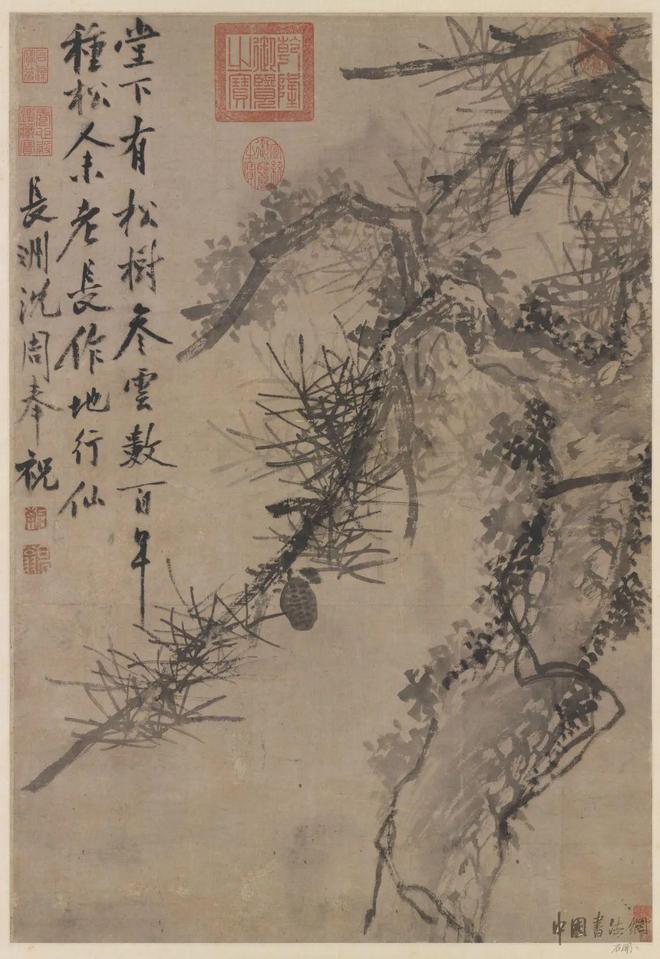 堂下有松樹參雲數百年
種松人未老長作地行仙
長洲沈周奉祝
乾隆御覽之寶
中國書法網